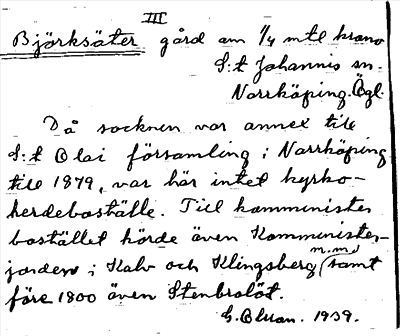 III
Björksäter gård om 1/4 mtl krono
S:t Johannis sn.
Norrköping. Ögl.
Då socknen var annex till
S:t Olai församling i Norrköping
till 1879, var här intet kyrko-
herdeboställe. Till komminister
bostället hörde även Komminister-
jorden i Kalv och Klingsberg m.m. samt
före 1800 även Stenbrolöt.
G. Olsson. 1939.